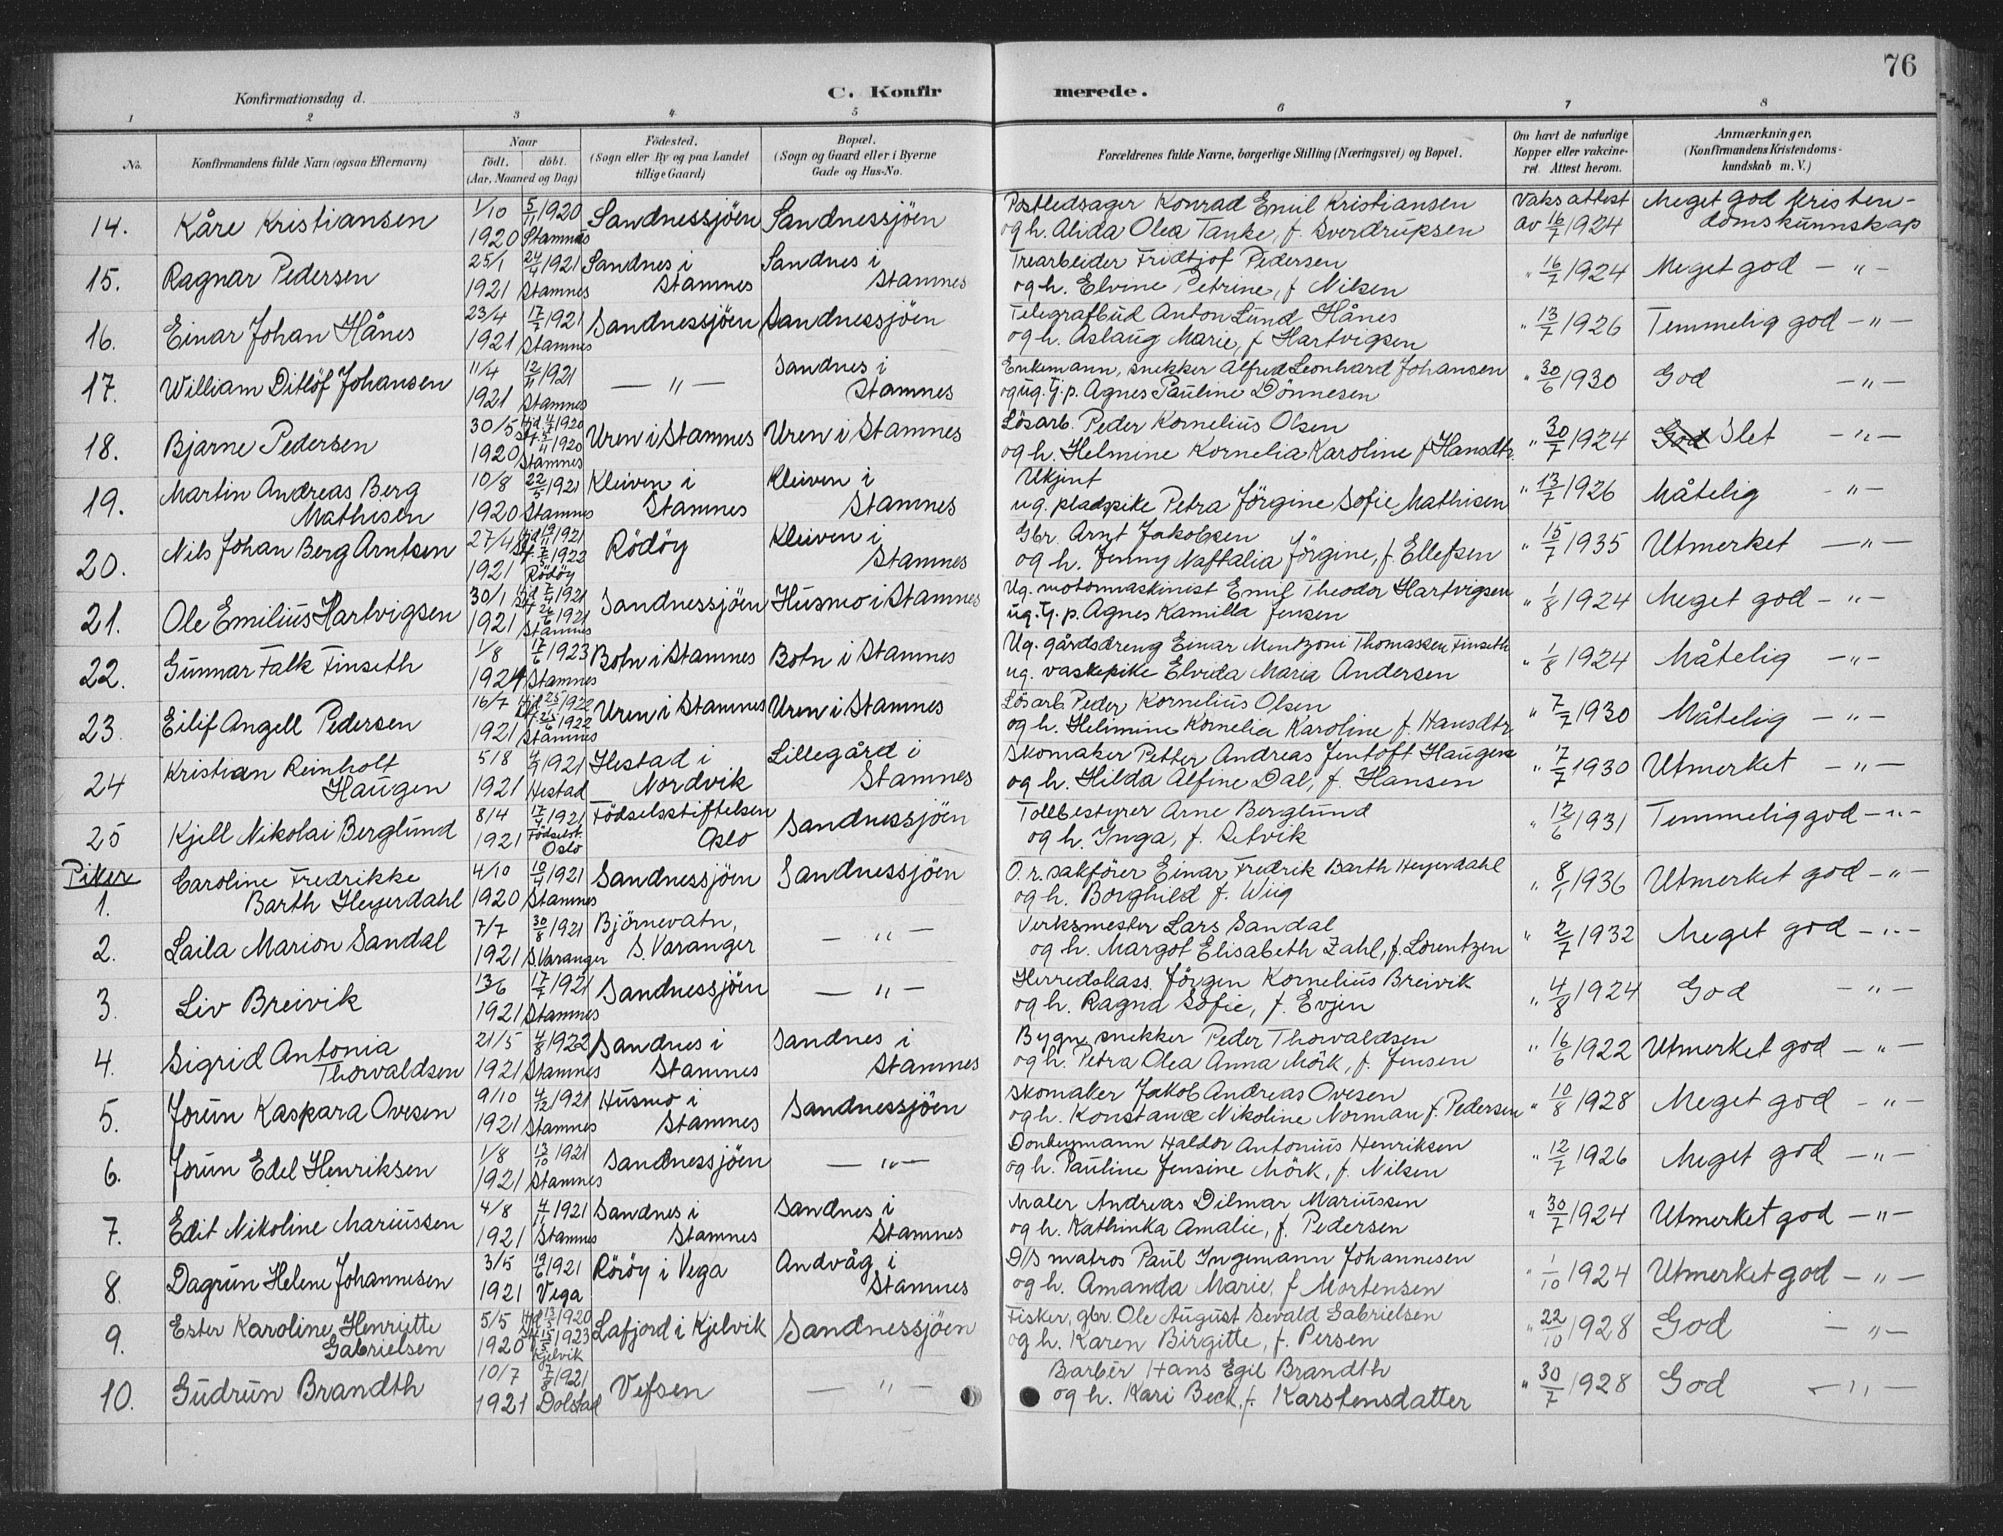 76
Konfirmationsdag d. C. Konfirmerede.
1 2 3 4 5 6 7 8
No. Konfirmandens fulde Navn (ogsaa Efternavn) Naar født. døbt. (Aar, Maaned og Dag) Fødested. (Sogn eller By og paa Landet tillige Gaard) Bopæl. (Sogn og Gaard eller i Byerne Gade og Hus-No. Forældrenes fulde Navne, borgerlige Stilling (Næringsvei) og Bopæl. Om havt de naturlige Kopper eller vakcineret. Attest herom. Anmærkninger, (Konfirmandens Kristendomskundskab m. V.)
14. Kåre Kristiansen 1/10 1920 5/11 1920 Stamnes Sandnessjöen Sandnessjöen Postledsager Konrad Emil Kristiansen
og h. Alida Olea Tanke, f. Sverdrupsen Vaksattest av 16/7 1924 Meget god kristendomskunnskap
15. Ragnar Pedersen 25/1 1921 24/4 1921 Stamnes Sandnes i Stamnes Sandnes i Stamnes Trearbeider Fridtjof Pedersen
og h. Elvine Petrine, f Nilsen " 16/7 1924 Meget god — " —
16. Einar Johan Hånes 23/4 1921 17/7 1921 Stamnes Sandnessjöen Sandnessjöen Telegrafbud Anton Lund Hånes
og h. Aslaug Marie, f Hartvigsen " 13/7 1926 Temmelig god — " —
17. William Ditlöf Johansen 11/4 1921 12/11 1921 Stamnes — " — Sandnes i Stamnes Enkemann, snikker Alfred Leonhard Johansen
og ug. tj. p. Agnes Pauline Dönnesen " 30/6 1930 God — " —
18. Bjarne Pedersen 30/5 1920 1920 Stamnes Uren i Stamnes Uren i Stamnes Lösarb. Peder Kornelius Olsen
og h. Helmine Kornelia Karoline f Hansdtr. " 30/7 1924 God Slet — " —
19. Martin Andreas Berg Mathisen 10/8 1920 22/5 1921 Stamnes Kleiven i Stamnes Kleiven i Stamnes Ukjent
ug. pladspike Petra Jörgine Sofie Mathisen " 13/7 1926 Måtelig — " —
20. Nils Johan Berg Arntsen 27/4 1921 1921 1922 Rödöy Rödöy Kleiven i Stamnes Gbr. Arnt Jakobsen
og h. Jenny Naftalia Jörgine, f. Ellefsen " 15/7 1935 Utmerket — " —
21. Ole Emilius Hartvigsen 30/1 1921 1921 26/6 1921 Stamnes Sandnessjöen Husmo i Stamnes Ug. motormaskinist Emil Theodor Hartvigsen
ug. tj. p. Agnes Kamilla Jensen " 1/8 1924 Meget god — " —
22. Gunnar Falk Finseth 1/8 17/6 1923 Stamnes Botn i Stamnes Botn i Stamnes Ug. gårdsdreng Einar Mentzoni Thomassen Finseth
ug. vaskepike Elvida Maria Andersen " 1/8 1924 Måtelig — " —
23. Eilif Angell Pedersen 16/7 1921 1922 25/6 1922 Stamnes Uren i Stamnes Uren i Stamnes Lösarb Peder Kornelius Olsen
og h. Helimine Kornelia Karoline f. Hansdtr " 7/7 1930 Måtelig — " —
24 Kristian Reinholt Haugen 5/8 1921 4/9 1921 Hestad Hestad i Nordvik Lillegård i Stamnes Skomaker Petter Andreas Jentoft Haugen
og h. Hilda Alfine Dal, f. Hansen " 7/7 1930 Utmerket — " —
25 Kjell Nikolai Berglund 8/4 1921 17/4 1921 Födselst. Oslo Födselsstiftelsen Oslo Sandnessjöen Tollbestyrer Arne Berglund
og h. Inga, f. Retvik " 12/6 1931 Temmelig god — " —
Piker
1. Caroline Fredrikke Barth Heyerdahl 4/10 1920 10/4 1921 Stamnes Sandnessjöen Sandnessjöen O.r.sakförer Einar Fredrik Barth Heyerdahl
og h. Borghild f. Wiig " 8/1 1936 Utmerket god — " —
2. Laila Marion Sandal 7/7 1921 30/8 1921 S Varanger Björnevatn, S. Varanger — " — Verksmester Lars Sandal
og h. Margot Elisabeth Zahl, f. Lorentzen " 2/7 1932 Meget god — " —
3. Liv Breivik 13/6 1921 17/7 1921 Stamnes Sandnessjöen — " — Herredskass. Jörgen Kornelius Breivik
og h. Ragna Sofie, f. Evjen " 4/8 1924 God — " —
4. Sigrid Antonia Thorvaldsen 21/5 1921 4/8 1922 Stamnes Sandnes i Stamnes Sandnes i Stamnes Bygn.snikker Peder Thorvaldsen
og h. Petra Olea Anna Mörk, f. Jensen " 16/6 1922 Utmerket god — " —
5. Jorun Kaspara Ovesen 9/10 1921 4/12 1921 Stamnes Husmo i Stamnes Sandnessjöen Skomaker Jakob Andreas Ovesen
og h. Konstance Nikoline Norman f. Pedersen " 10/8 1928 Meget god — " —
6. Jorun Edel Henriksen 1/8 1921 13/10 1921 Stamnes Sandnessjöen — " — Donkeymann Haldor Antonius Henriksen
og h. Pauline Jensine Mörk, f. Nilsen " 12/7 1926 Meget god — " —
7. Edit Nikoline Mariussen 4/8 1921 1921 Stamnes Sandnes i Stamnes Sandnes i Stamnes Maler Andreas Dilmar Mariussen
og h. Kathinka Amalie, f. Pedersen " 30/7 1924 Utmerket god — " —
8. Dagrun Helene Johannesen 3/5 1921 19/6 1921 Vega Röröy i Vega Andvåg i Stamnes D/S matros Paul Ingemann Johannesen
og h. Amanda Marie, f Mortensen " 1/10 1924 Utmerket god — " —
9. Ester Karoline Henriette Gabrielsen 5/5 1920 1920 1923 Kjelvik Lafjord i Kjelvik Sandnessjöen Fisker, gbr. Ole August Sevald Gabrielsen
og h. Karen Birgitte, f. Persen " 22/10 1928 God — " —
10. Gudrun Brandth 10/7 1921 7/8 1921 Dolstad Vefsen — " — Barbér Hans Egil Brandth
og h. Kari Beck, f. Karstensdatter " 30/7 1928 God — " —